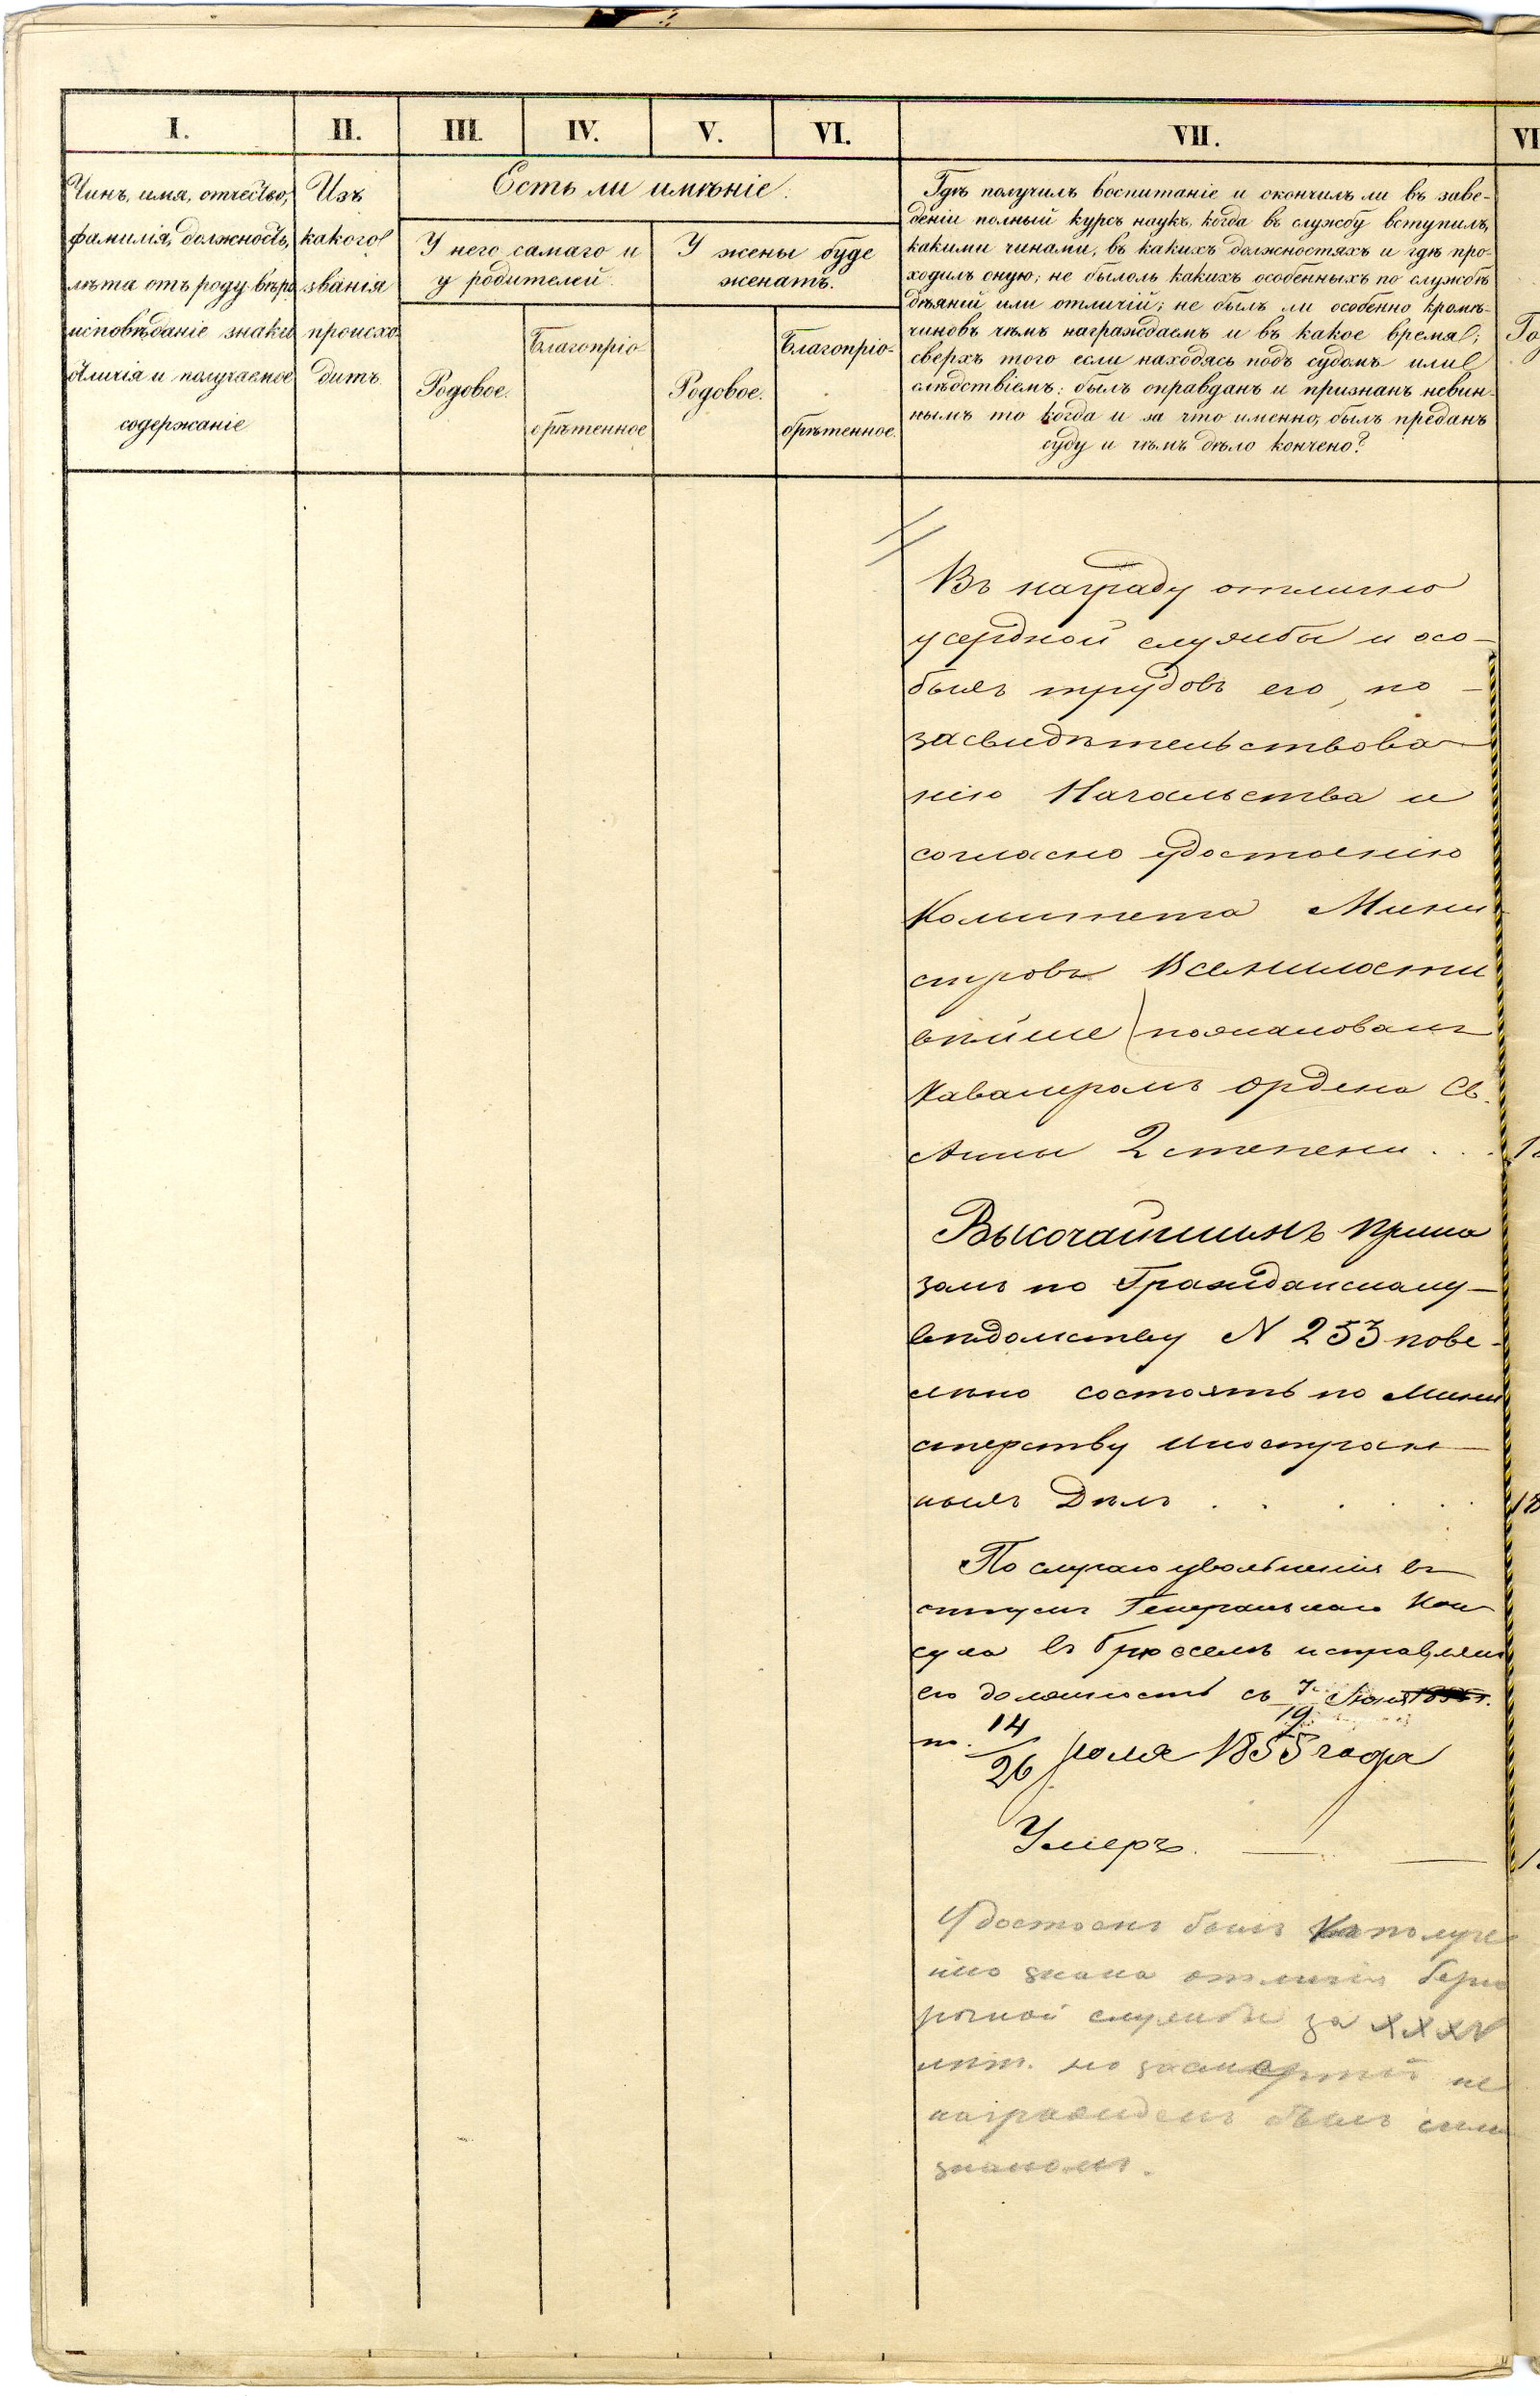 I.
II.
III.
IV.
V.
VI.
VII.
VI
Чинъ, имя, отчество,
фамилія, должность,
лѣта отъ роду вѣро
исповѣданіе знаки
отличія и получаемое
содержаніе
Изъ
какого
званія
происхо-
дитъ
Есть ли имѣніе.
У него самаго и
у родителей.
У жены буде
женатъ.
Родовое.
Благопріо
брѣтенное
Родовое.
Благопріо-
брѣтенное.
Гдѣ получилъ воспитаніе и окончилъ ли въ заве-
деніи полный курсъ наукъ, когда въ службу вступилъ,
какими чинами, въ какихъ должностяхъ и гдѣ про-
ходилъ оную; не былоль какихъ особенныхъ по службѣ
дѣяній или отличій; не былъ ли особенно кромѣ
чиновъ чѣмъ награждаемъ и въ какое время;
сверхъ того если находясь подъ судомъ или
слѣдствіемъ: былъ оправданъ и признанъ невин-
нымъ то когда и за что именно, былъ преданъ
суду и чѣмъ дѣло кончено?
Го
Въ награду отлично
усердной службы и осо-
быхъ трудовъ его, по
засвидѣтельствова
нію Начальства и
согласно удостоенію
Комитета Мини
стровъ Всемилости
вѣйше пожалованъ
Кавалеромъ ордена Св.
Анны 2 степени . . .
Высочайшимъ Прика
зомъ по Гражданскому
вѣдомству N 253 пове-
лѣно состоять по Мини
стерству Иностран
ныхъ Дѣлъ . . . . .
18
По случаю увольненія въ
отпускъ Генеральнаго Кон
сула въ Брюсселѣ исправлялъ
его должность съ 7/19 Іюля
по 14/26 Іюля 1855 года
Умеръ. — —
Удостоенъ былъ къ получе
нію знака отличія безпо
рочной службы за XXXV
лѣтъ. но за смертію не
награжденъ былъ симъ
знакомъ.